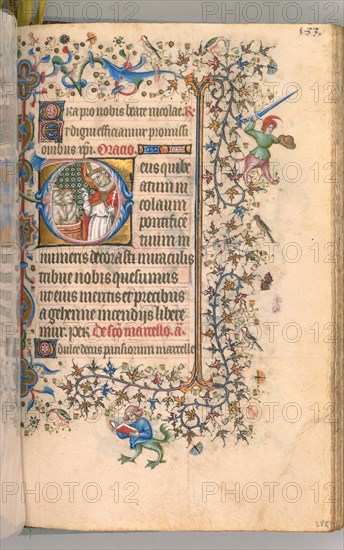 Ora pro nobis beate nicolae. R.
Et digni efficiamur promissi
onibus xpi. Oracio.
Deus qui be
atum ni
colaum
pontificē
tuum in
numeris decorasti miraculis
tribue nobis quesumus
ut eius meritis et precibus
a gehenne incendijs libere
mur. per. De sco marcello. a.
O dulce decus parisiorum marcelle
PHOTO12